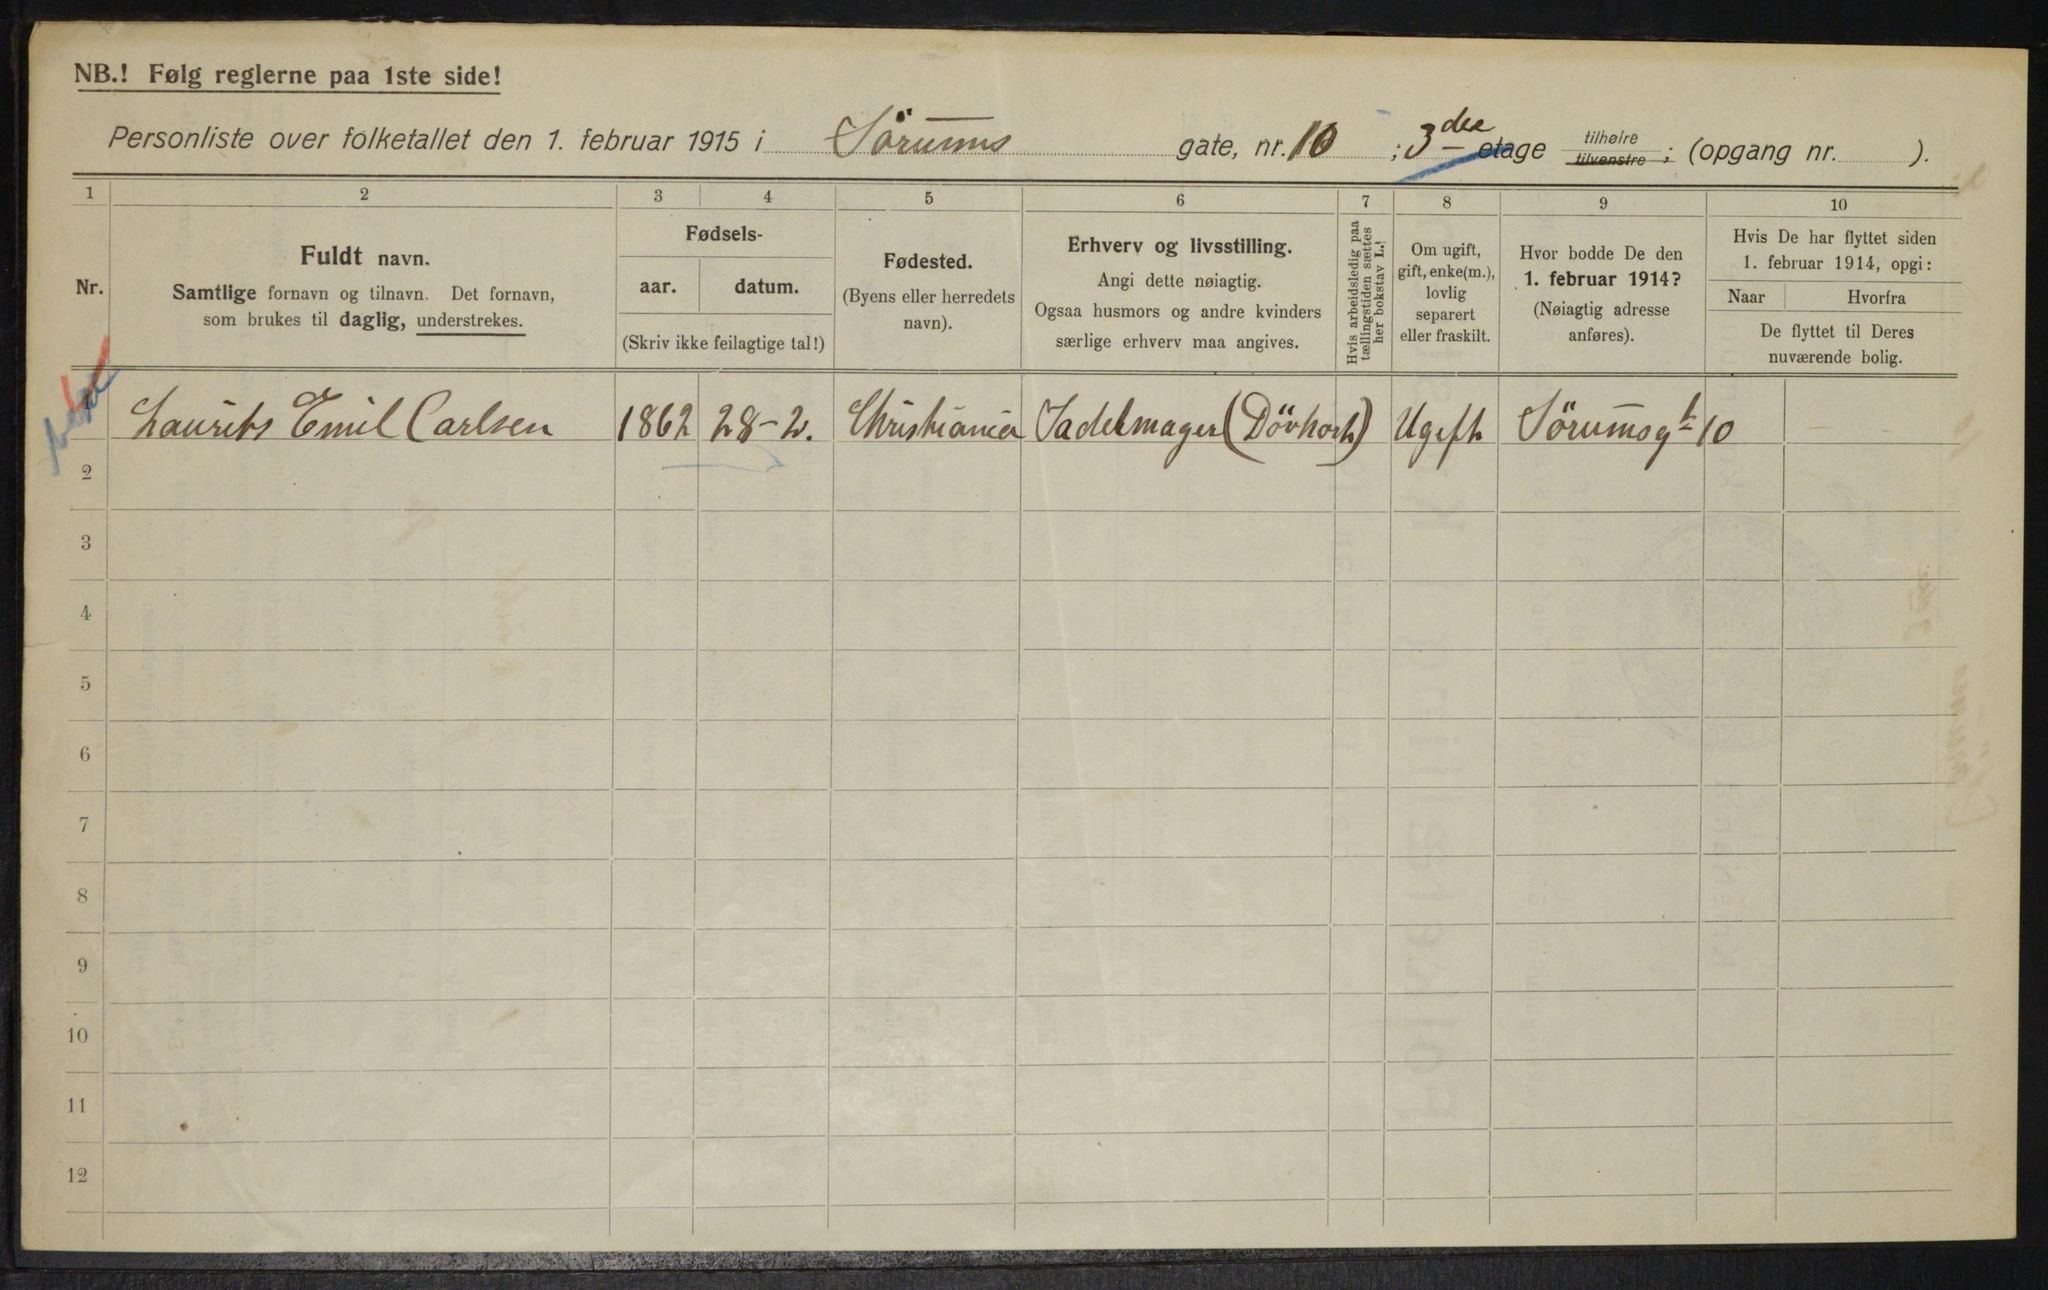 NB.! Følg reglerne paa 1ste side!
Personliste over folketallet den 1. februar 1915 i Sörums gate, nr. 10 ; 3 die etage tilhøire tilvenstre; (opgang nr. ).
1 2 3 4 5 6 7 8 9 10
Nr.
Fuldt navn.
Samtlige fornavn og tilnavn. Det fornavn,
som brukes til daglig, understrekes.
Fødsels-
aar. datum.
(Skriv ikke feilagtige tal!)
Fødested.
(Byens eller herredets
navn).
Erhverv og livsstilling.
Angi dette nøiagtig.
Ogsaa husmors og andre kvinders
særlige erhverv maa angives.
Hvis arbeidsledig paa
tællingstiden sættes
her bokstav L.!
Om ugift,
gift, enke(m.),
lovlig
separert
eller fraskilt.
Hvor bodde De den
1. februar 1914?
(Nøiagtig adresse
anføres).
Hvis De har flyttet siden
1. februar 1914, opgi:
Naar Hvorfra
De flyttet til Deres
nuværende bolig.
1 Laurits Emil Carlsen 1862 28-2. Christiania Sadelmager (Dövkork) Ugift Sörumsgt 10 — —
2
3
4
5
6
7
8
9
10
11
12